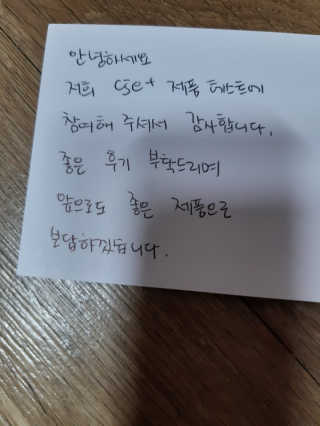 안녕하세요
저희 cse+ 제품 테스트에
참여해 주셔서 감사합니다.
좋은 후기 부탁드리며
앞으로도 좋은 제품으로
보답하겠습니다.